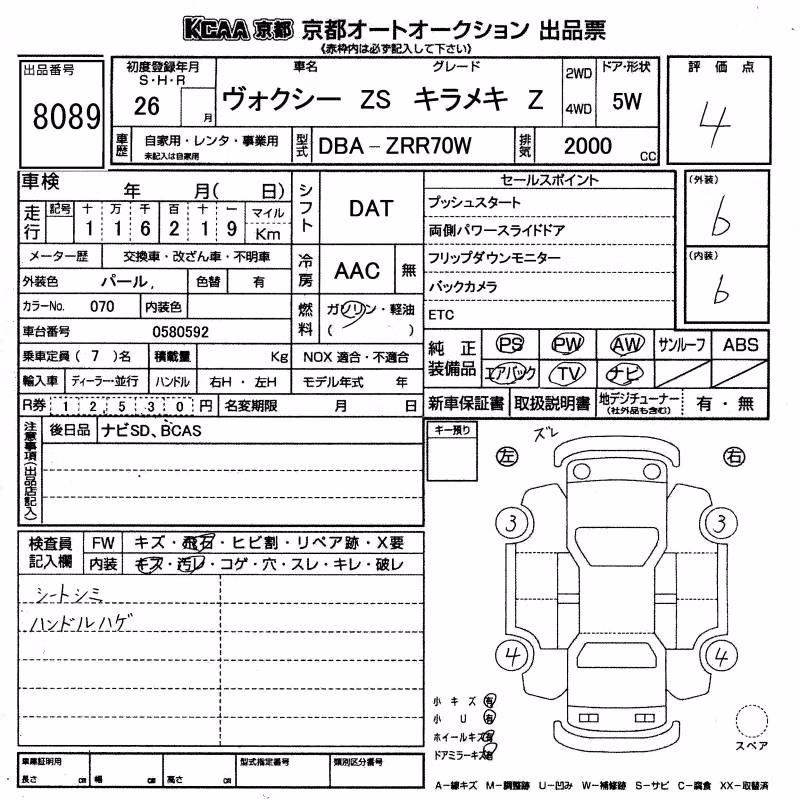 KCAA 京都 京都オートオークション 出品票
《赤枠内は必ず記入して下さい》
出品番号
8089
初度登録年月
S・H・R
26 月
車名 グレード
ヴォクシー ZS キラメキ Z
2WD
4WD
ドア・形状
5W
評価点
4
車歴
自家用・レンタ・事業用
未記入は自家用
型式
DBA-ZRR70W
排気
2000 CC
車検 年 月( 日)
走行
記号 十 万 千 百 十 一 マイル
1 1 6 2 1 9 Km
シフト
DAT
セールスポイント
プッシュスタート
両側パワースライドドア
フリップダウンモニター
バックカメラ
ETC
(外装)
6
(内装)
6
メーター歴 交換車・改ざん車・不明車
外装色 パール, 色替 有
カラーNo. 070 内装色
冷房
AAC 無
燃料
ガソリン・軽油
( )
車台番号 0580592
乗車定員( 7 )名 積載量 Kg NOX 適合・不適合
輸入車 ディーラー・並行 ハンドル 右H・左H モデル年式 年
R券 1 2,5 3 0 円 名変期限 月 日
純正装備品
PS PW AW サンルーフ ABS
エアバック TV ナビ
新車保証書 取扱説明書 地デジチューナー
(社外品も含む)
有・無
注意事項(出品店記入)
後日品 ナビSD、BCAS
キー預り
ズレ
左 右
3 3
4 4
検査員記入欄
FW キズ・飛石・ヒビ割・リペア跡・X要
内装 キズ・汚レ・コゲ・穴・スレ・キレ・破レ
シートシミ
ハンドルハゲ
小キズ 有
小U 有
ホイールキズ 有
ドアミラーキズ 有
スペア
車庫証明用
長さ cm 幅 cm 高さ cm
型式指定番号 類別区分番号
A-線キズ M-調整跡 U-凹み W-補修跡 S-サビ C-腐食 XX-取替済